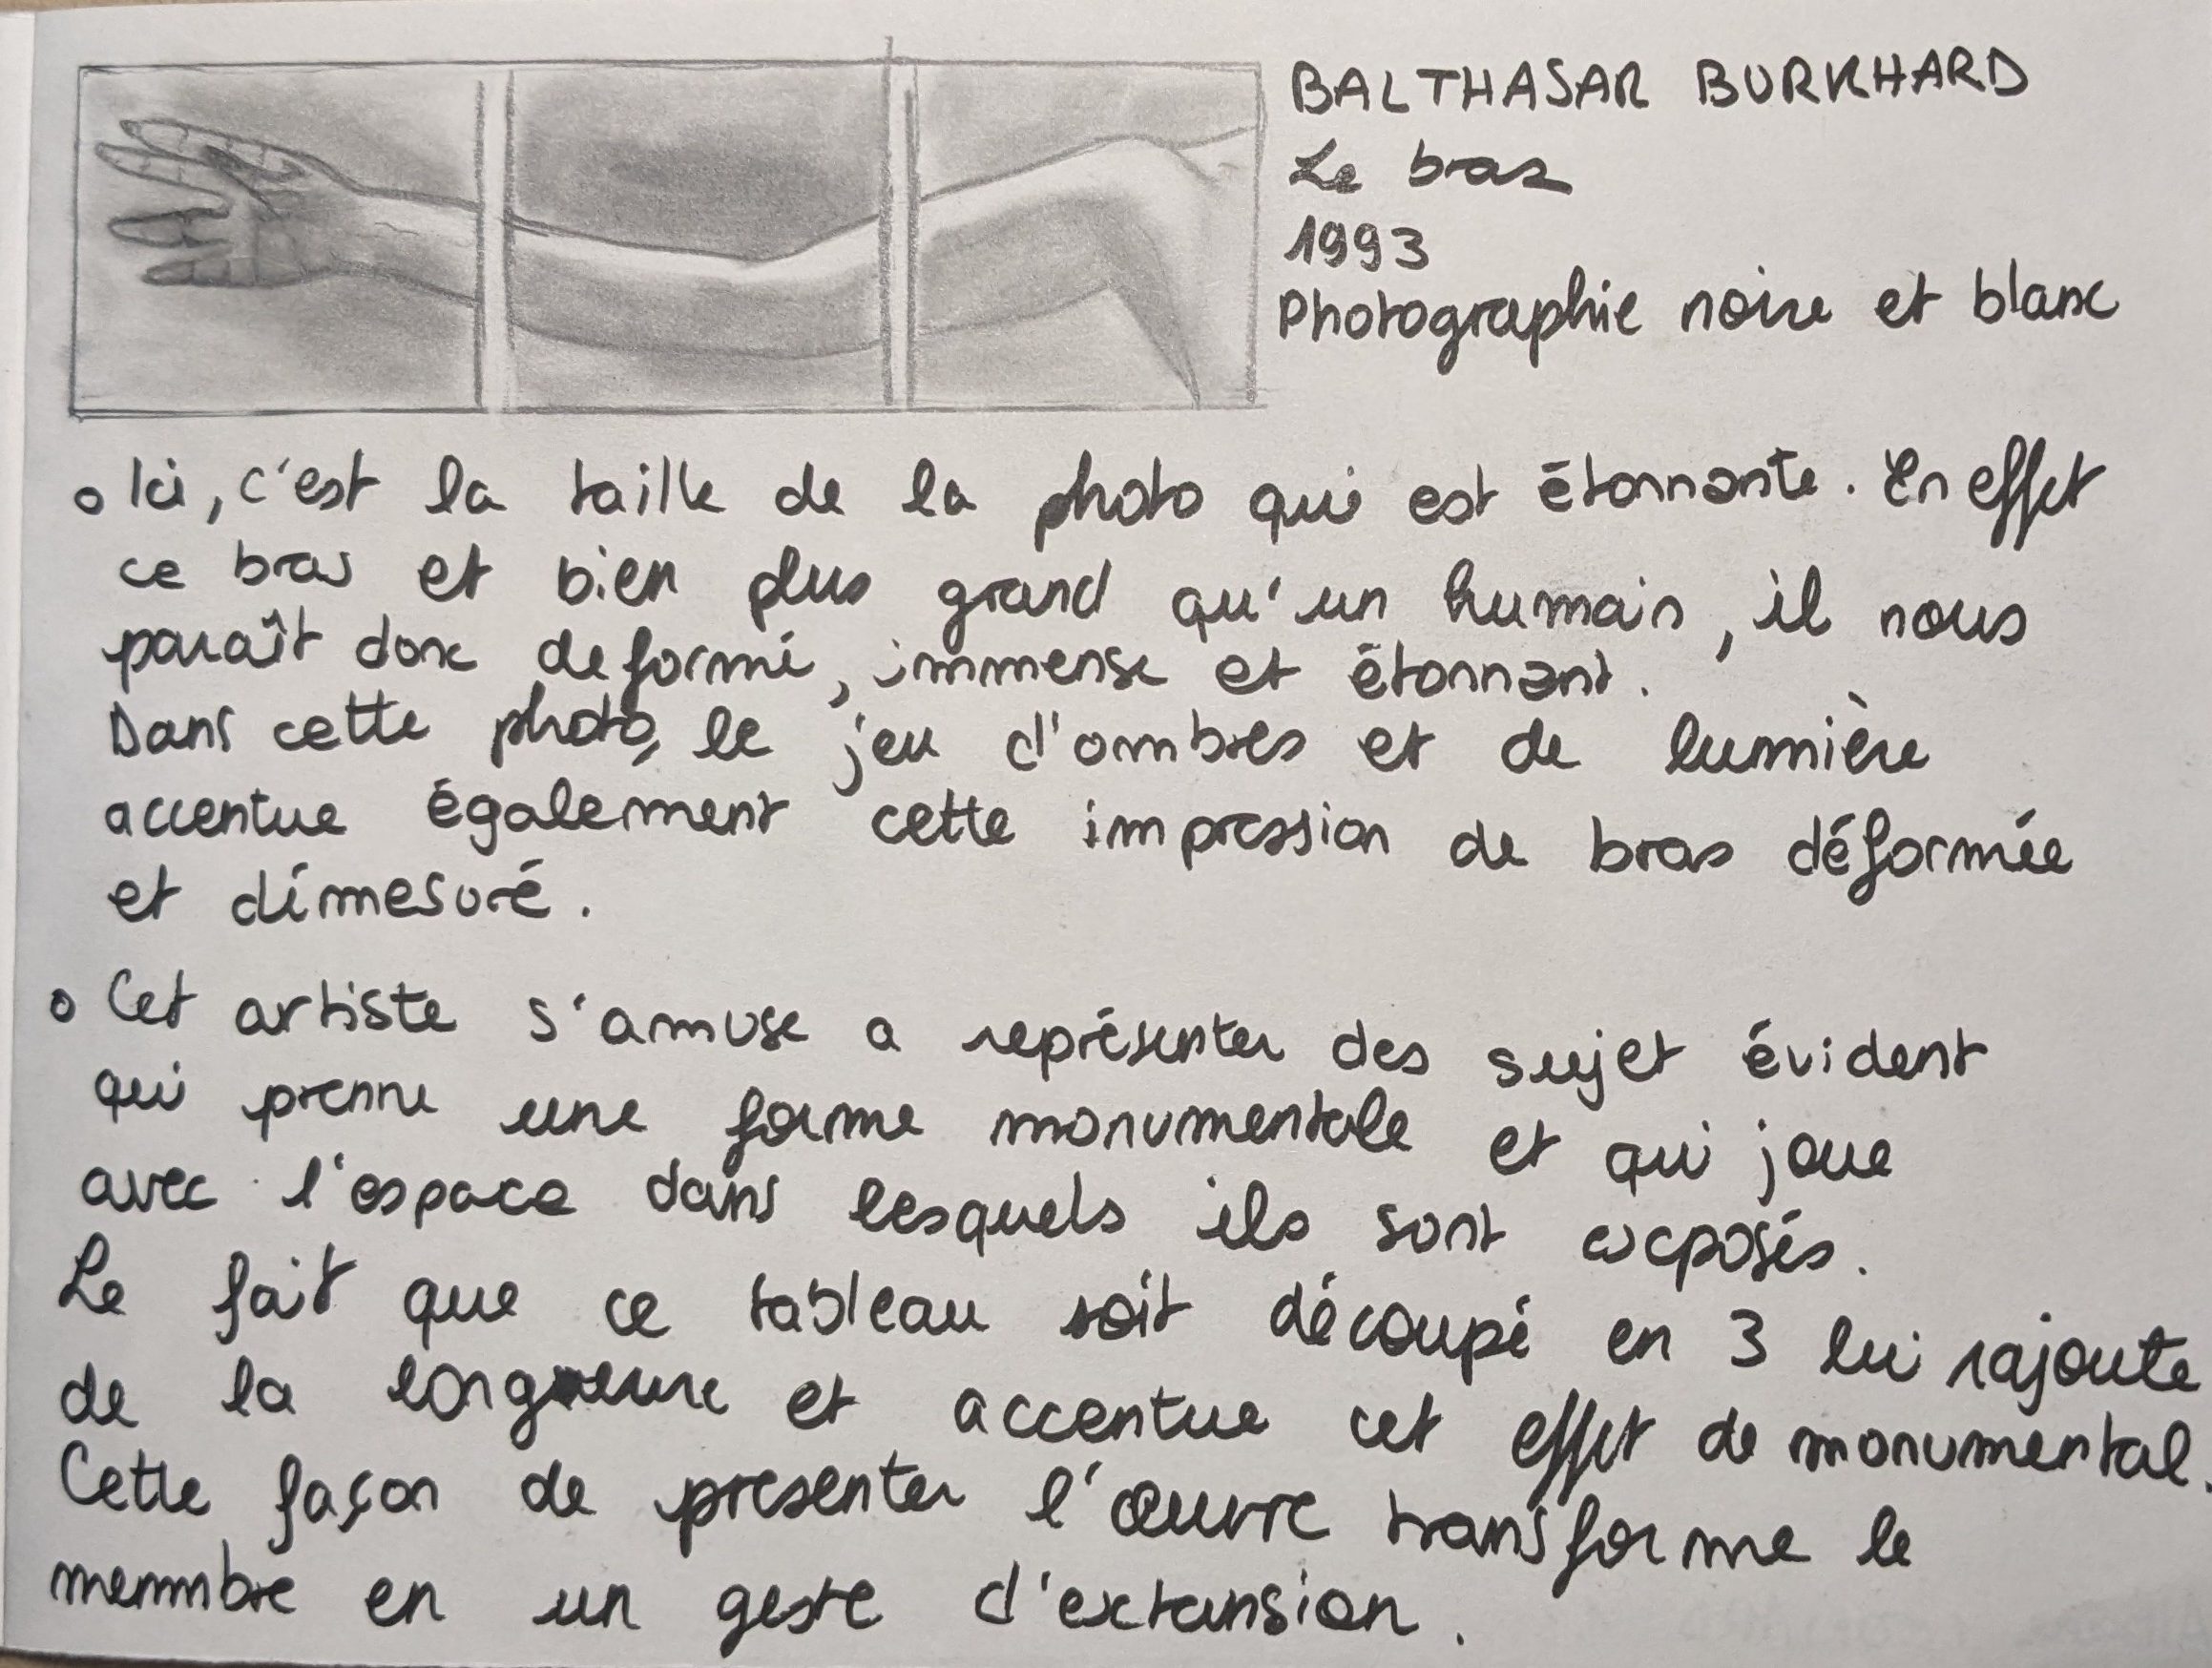 BALTHASAR BURKHARD
Le bras
1993
Photographie noire et blanc
o Ici, c'est la taille de la photo qui est étonnante. En effet
ce bras et bien plus grand qu'un humain, il nous
paraît donc deformé, immense et étonnant.
Dans cette photo, le jeu d'ombres et de lumière
accentue également cette impression de bras déformée
et démesuré.
o Cet artiste s'amuse a représenter des sujet évident
qui prenne une forme monumentale et qui joue
avec l'espace dans lesquels ils sont exposés.
Le fait que ce tableau soit découpé en 3 lui rajoute
de la longueure et accentue cet effet de monumental.
Cette façon de presenter l'œuvre transforme le
memmbre en un geste d'extansion.